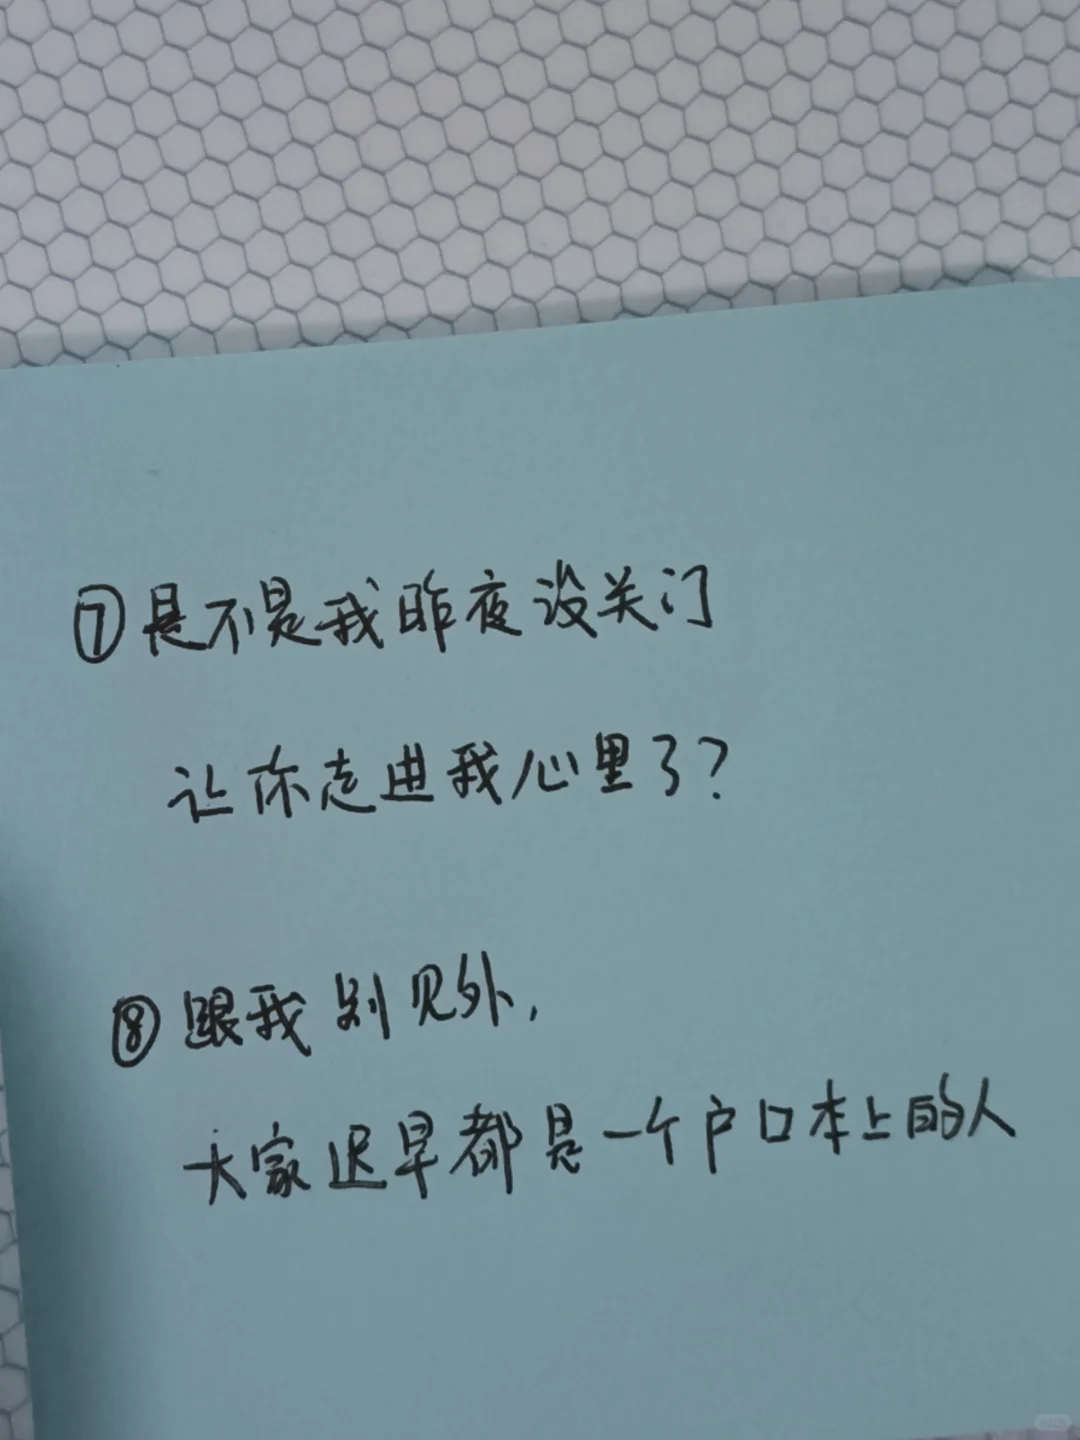 ⑦是不是我昨夜没关门
让你走进我心里了?
⑧跟我别见外,
大家迟早都是一个户口本上的人